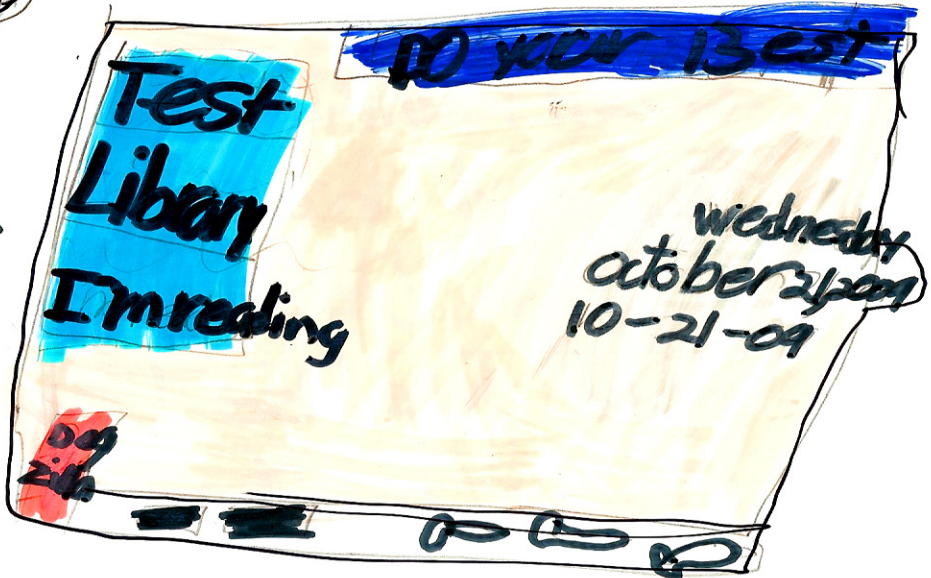 Do your Best
Test
Library
I'm reading
wedneday
october 21,2009
10-21-09
Dog